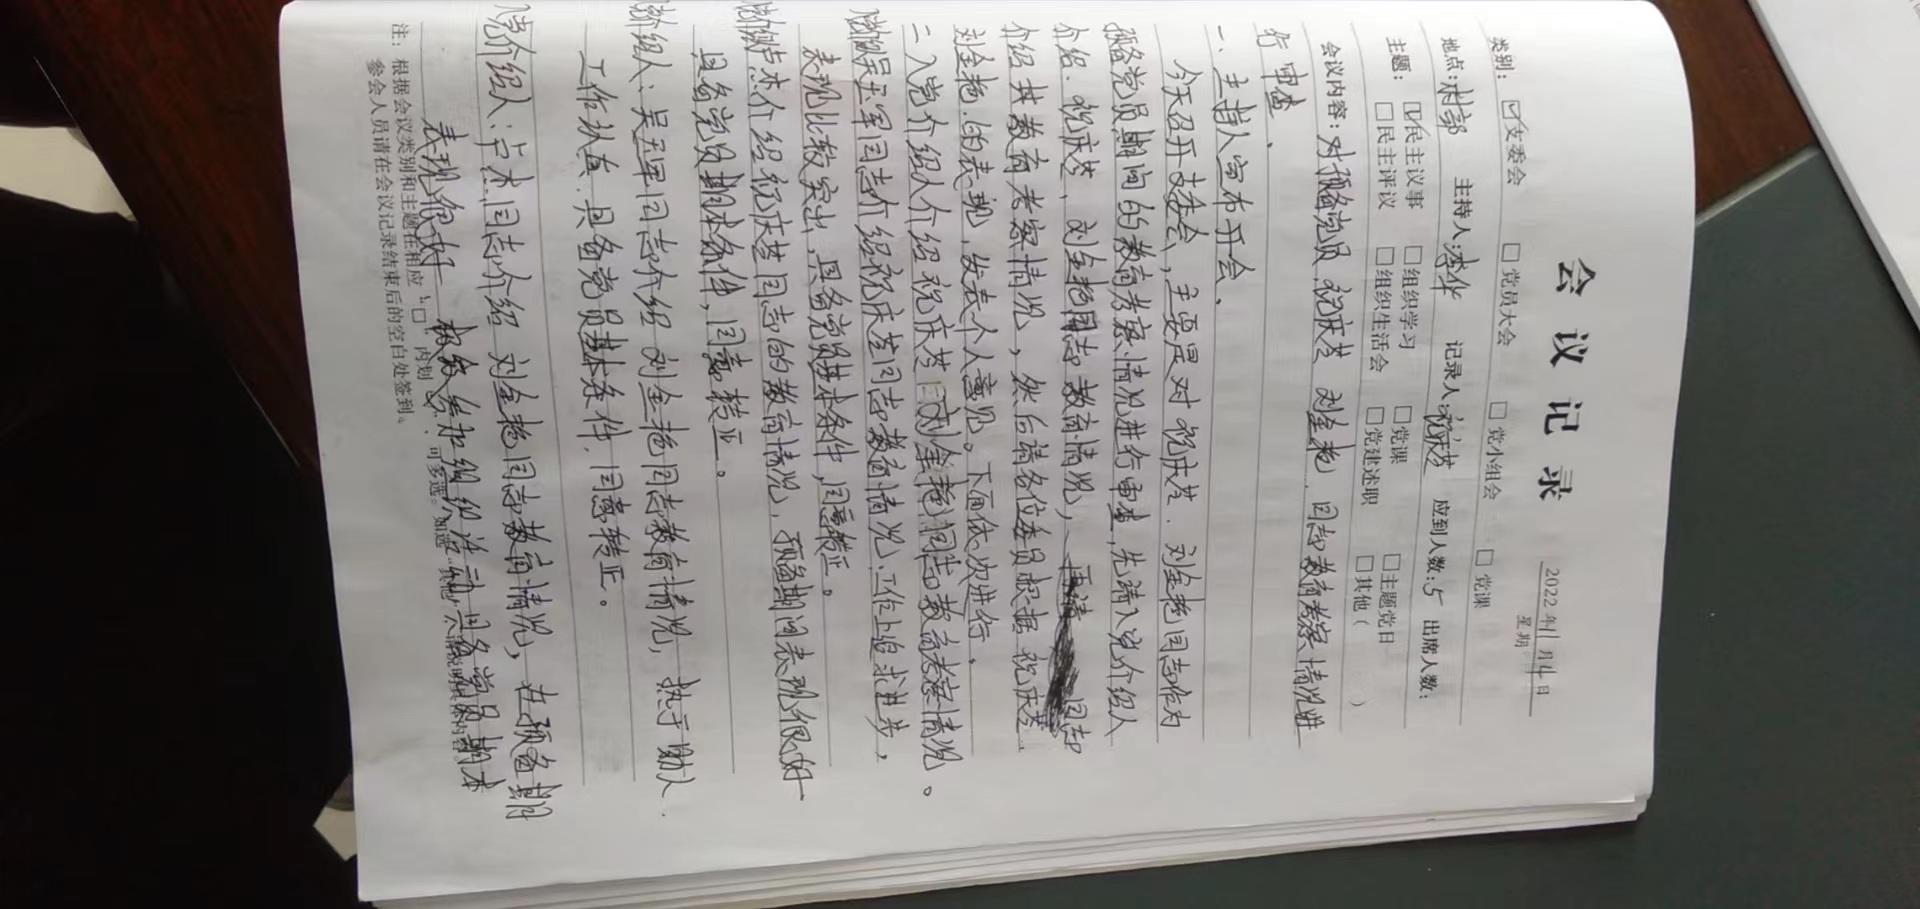 会议记录
2022年11月4日
星期
类别：☑支委会 □党员大会 □党小组会 □党课
地点：村部 主持人： 记录人：祝庆芝 应到人数：5 出席人数：
主题：☑民主议事 □组织学习 □党课 □主题党日
□民主评议 □组织生活会 □党建述职 □其他（ ）
会议内容：对预备党员祝庆芝 刘全艳，同志教育考察情况进
行审查、
一、主持人宣布开会、
今天召开支委会，主要是对祝庆芝．刘全艳同志作为
预备党员期间的教育考察情况进行审查，先请入党介绍人
介绍．祝庆芝，刘全艳同志教育情况，再请 同志
介绍其教育考察情况，然后请各位委员根据祝庆芝、
刘全艳．的表现，发表个人意见。下面依次进行、
二、入党介绍人介绍祝庆芝 刘全艳同志教育考察情况。
吴玉军同志介绍祝庆芝同志教育情况．工作上追求进步，
表现比较突出，具备党员基本条件，同意转正。
卢杰介绍祝庆芝同志的教育情况，预备期间表现很好
具备党员基本条件，同意转正。
介绍人：吴玉军同志介绍刘全艳同志教育情况，热于助人．
工作认真．具备党员基本条件．同意转正。
入党介绍人：卢杰同志介绍刘全艳同志教育情况，在预备期
表现很好 积极参加组织活动具备党员基本
注：根据会议类别和主题在相应"□"内划"√"，可多选。如选"其他"，请说明具体内容。
参会人员请在会议记录结束后的空白处签到。